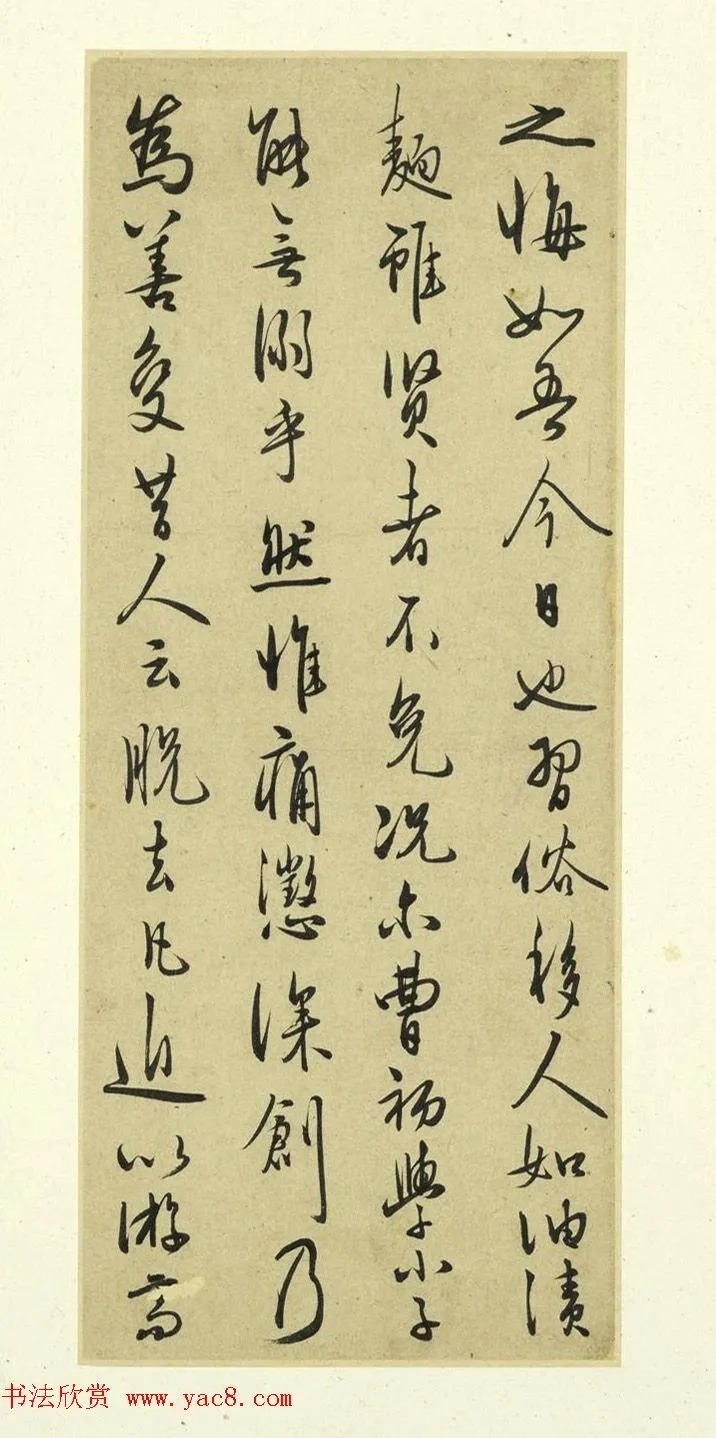 之悔如吾今日也習俗移人如油漬
麵雖賢者不免況尔曹初學小子
能無溺乎然惟痛懲深創乃
為善變昔人云脫去凡近以游高
书法欣赏 www.yac8.com